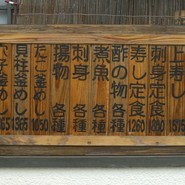 上寿し 1575
刺身定食 1890
寿し定食 1260
酢の物 各種
煮魚 各種
刺身 各種
揚物 各種
たこ釜めし 1050
貝柱釜めし 1365
穴子釜めし